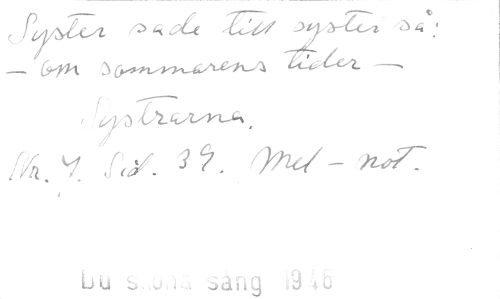 Syster sade till syster så:
– om sommarens tider –
Systrarna.
Nr. 7. Sid. 39. Mel – not.
Du sköna sång 1946